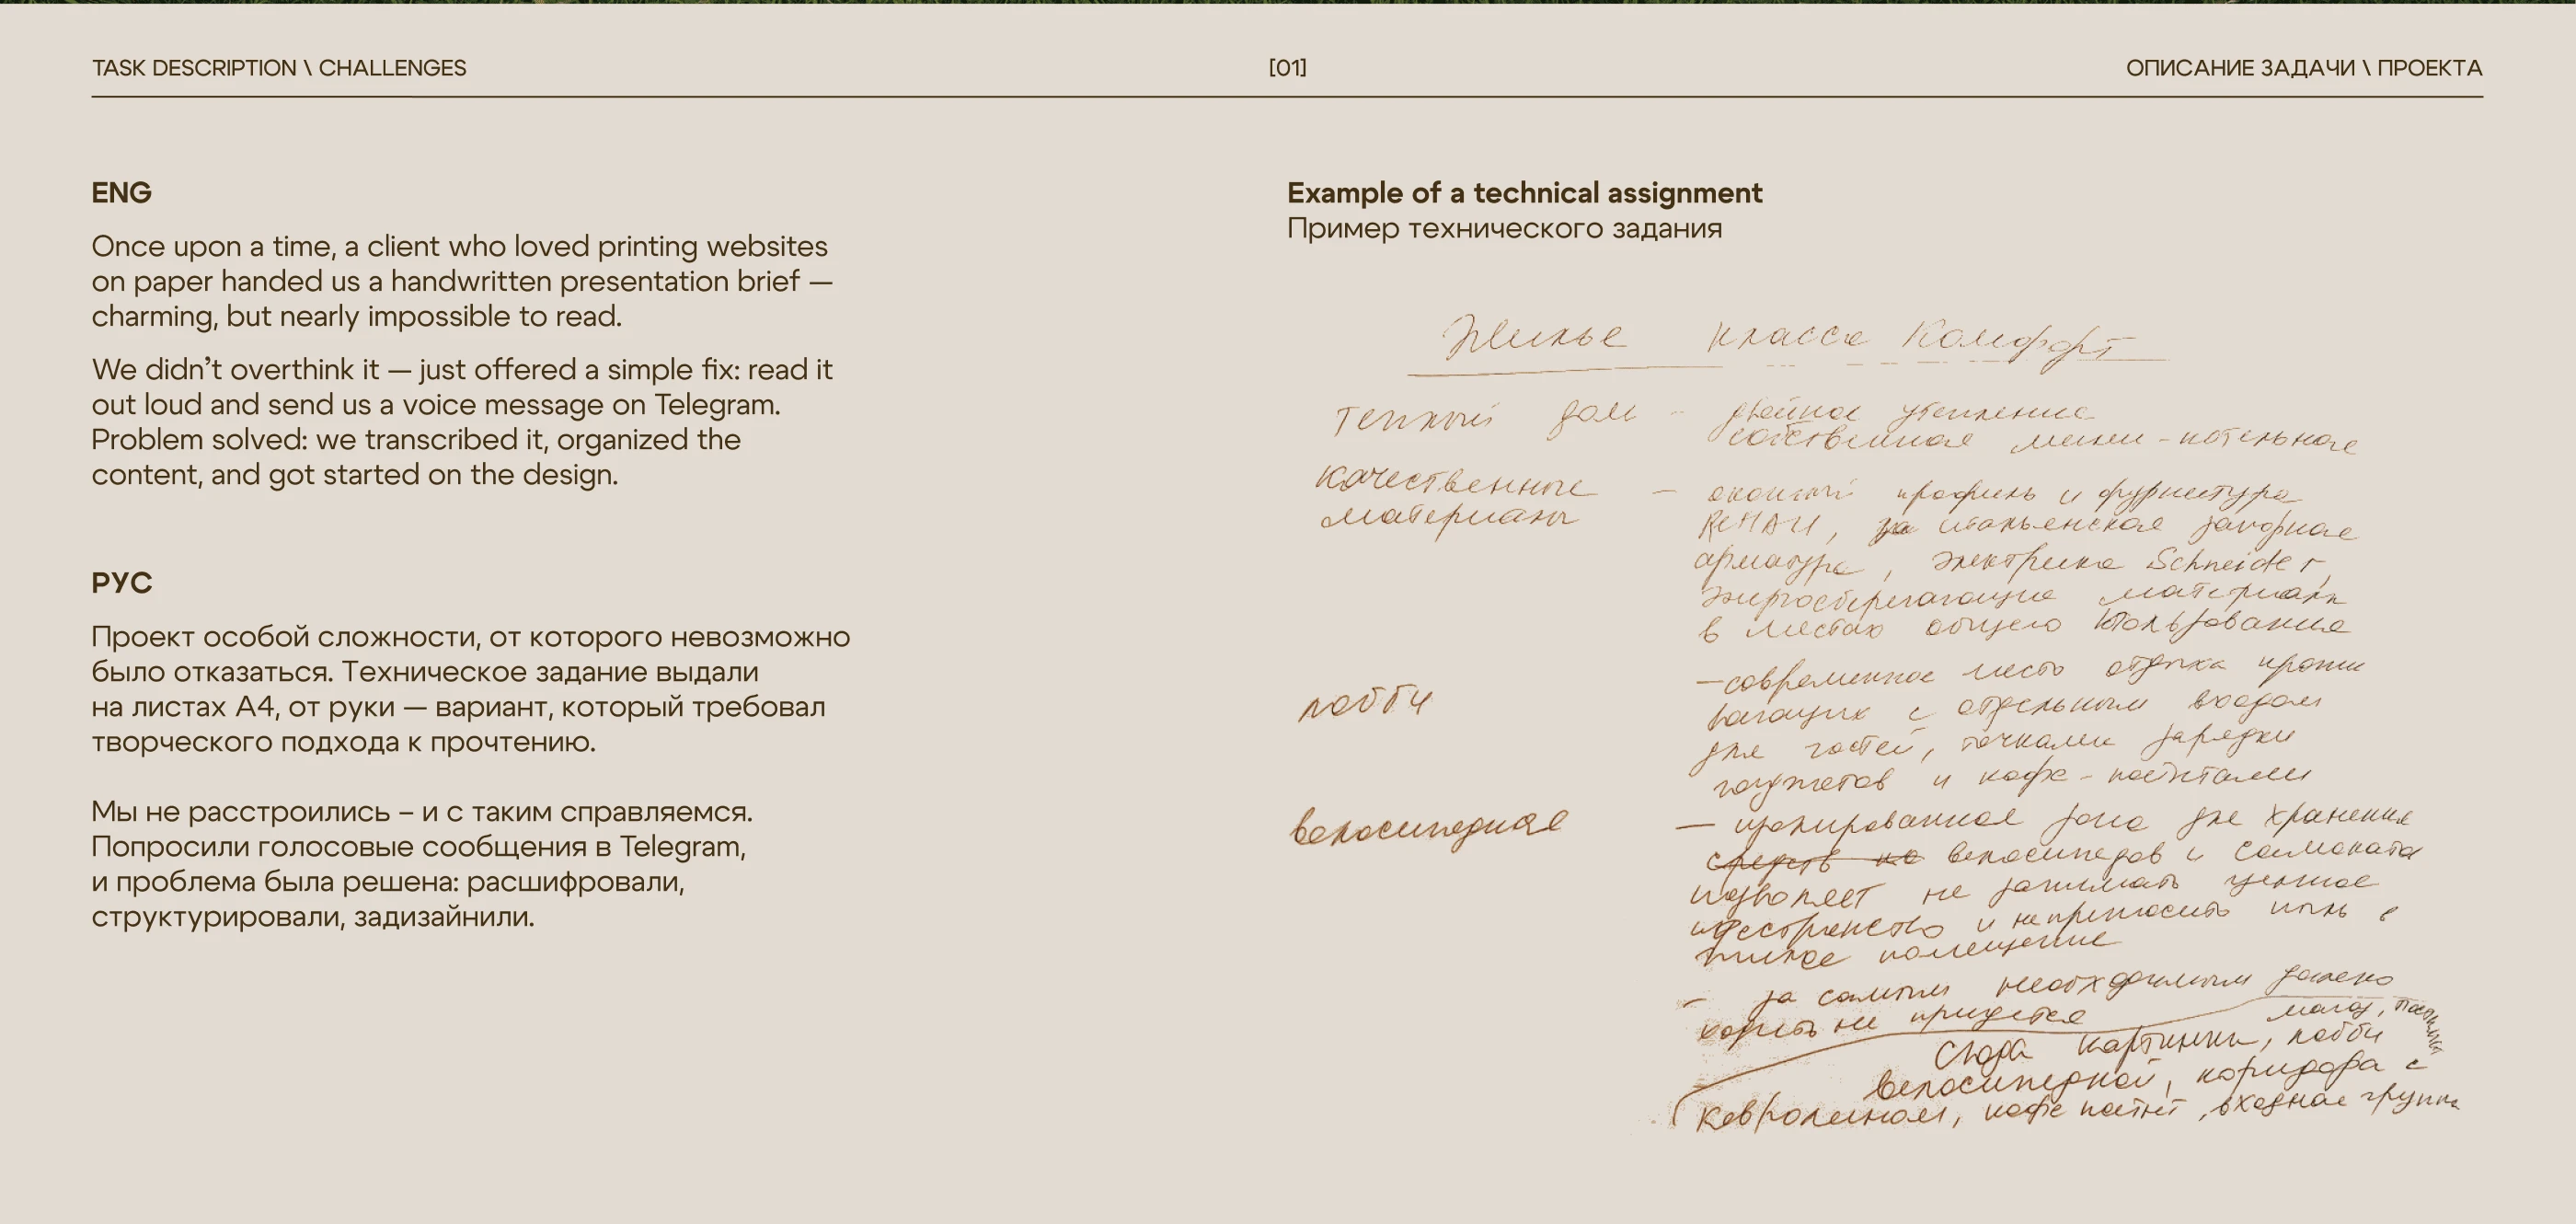 TASK DESCRIPTION \ CHALLENGES
[01]
ОПИСАНИЕ ЗАДАЧИ \ ПРОЕКТА
ENG
Once upon a time, a client who loved printing websites
on paper handed us a handwritten presentation brief —
charming, but nearly impossible to read.
We didn’t overthink it — just offered a simple fix: read it
out loud and send us a voice message on Telegram.
Problem solved: we transcribed it, organized the
content, and got started on the design.
РУС
Проект особой сложности, от которого невозможно
было отказаться. Техническое задание выдали
на листах А4, от руки — вариант, который требовал
творческого подхода к прочтению.
Мы не расстроились – и с таким справляемся.
Попросили голосовые сообщения в Telegram,
и проблема была решена: расшифровали,
структурировали, задизайнили.
Example of a technical assignment
Пример технического задания
Жилье класса Комфорт
теплый дом - двойное утепление
собственная мини-котельная
качественные
материалы
— оконный профиль и фурнитура
REHAU, итальянская запорная
арматура, электрика Schneider,
энергосберегающие материалы
в местах общего пользования
лобби
— современное место отдыха
с отдельным входом
для гостей, точками зарядки
гаджетов и кофе-поинтами
велосипедная
— изолированная зона для хранения
средств на велосипедов и самоката
позволяет не занимать ценное
пространство и не приносить пыль в
жилое помещение
- за самым необходимым далеко
ходить не придется
Сюда картинки, лобби
велосипедной, коридора с
ковролином, кофе поинт, входная группа